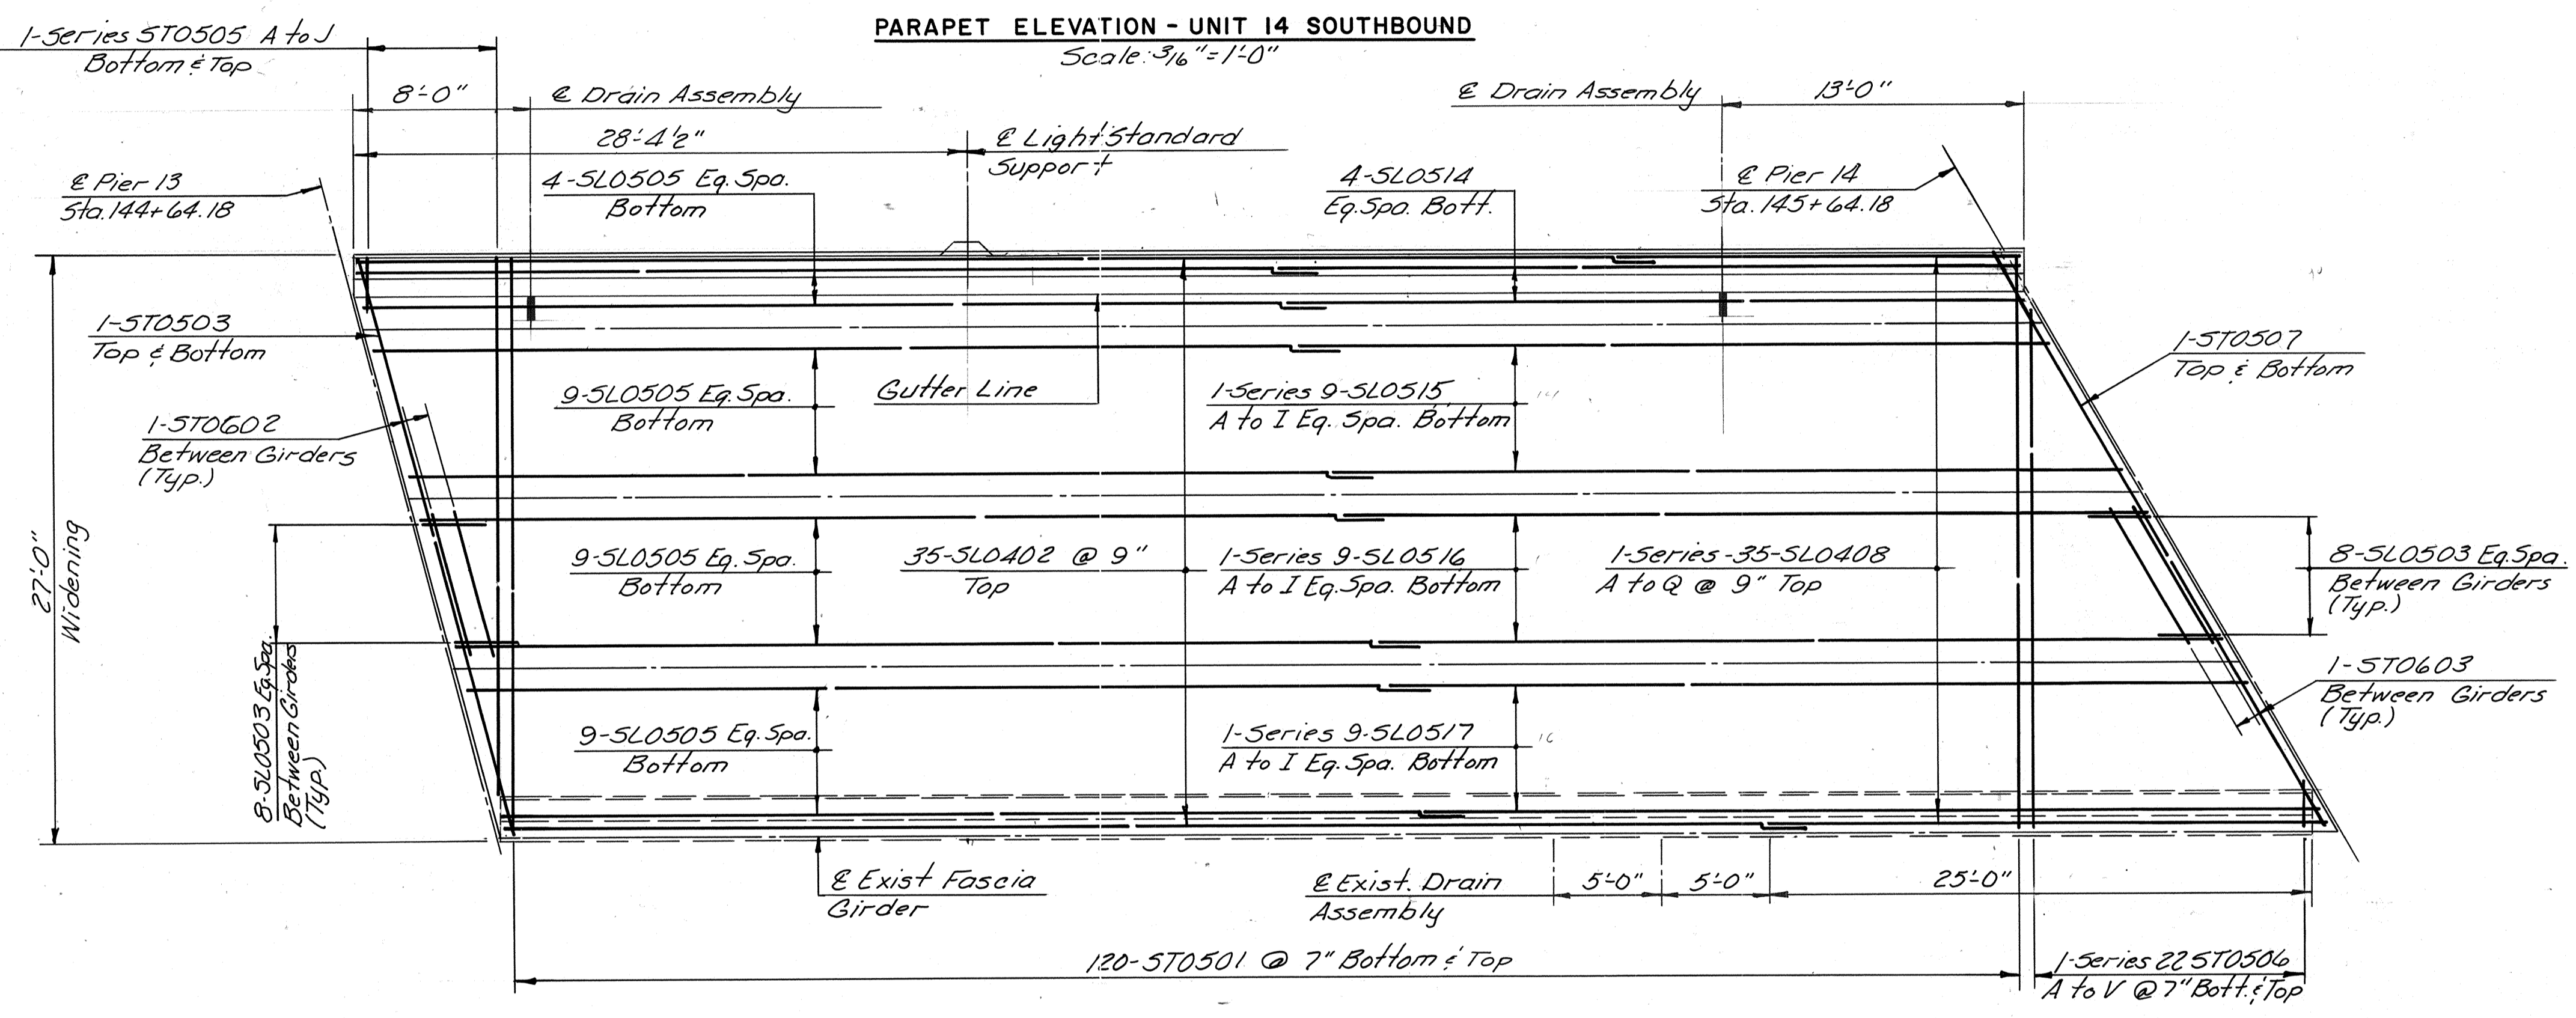 PARAPET ELEVATION - UNIT 14 SOUTHBOUND
Scale: 3/16" = 1'-0"
1-Series ST0505 A to J
Bottom & Top
8'-0"
℄ Drain Assembly
℄ Drain Assembly
13'-0"
28'-4½"
℄ Light Standard
Support
℄ Pier 13
Sta. 144+64.18
4-SL0505 Eq. Spa.
Bottom
4-SL0514
Eq. Spa. Bott.
℄ Pier 14
Sta. 145+64.18
1-ST0503
Top & Bottom
1-ST0507
Top & Bottom
9-SL0505 Eq. Spa.
Bottom
Gutter Line
1-Series 9-SL0515
A to I Eq. Spa. Bottom
1-ST0602
Between Girders
(Typ.)
27'-0"
Widening
9-SL0505 Eq. Spa.
Bottom
35-SL0402 @ 9"
Top
1-Series 9-SL0516
A to I Eq. Spa. Bottom
1-Series-35-SL0408
A to Q @ 9" Top
8-SL0503 Eq. Spa.
Between Girders
(Typ.)
8-SL0503 Eq. Spa.
Between Girders
(Typ.)
1-ST0603
Between Girders
(Typ.)
9-SL0505 Eq. Spa.
Bottom
1-Series 9-SL0517
A to I Eq. Spa. Bottom
℄ Exist Fascia
Girder
℄ Exist. Drain
Assembly
5'-0"
5'-0"
25'-0"
120-ST0501 @ 7" Bottom & Top
1-Series 22 ST0506
A to V @ 7" Bott. & Top